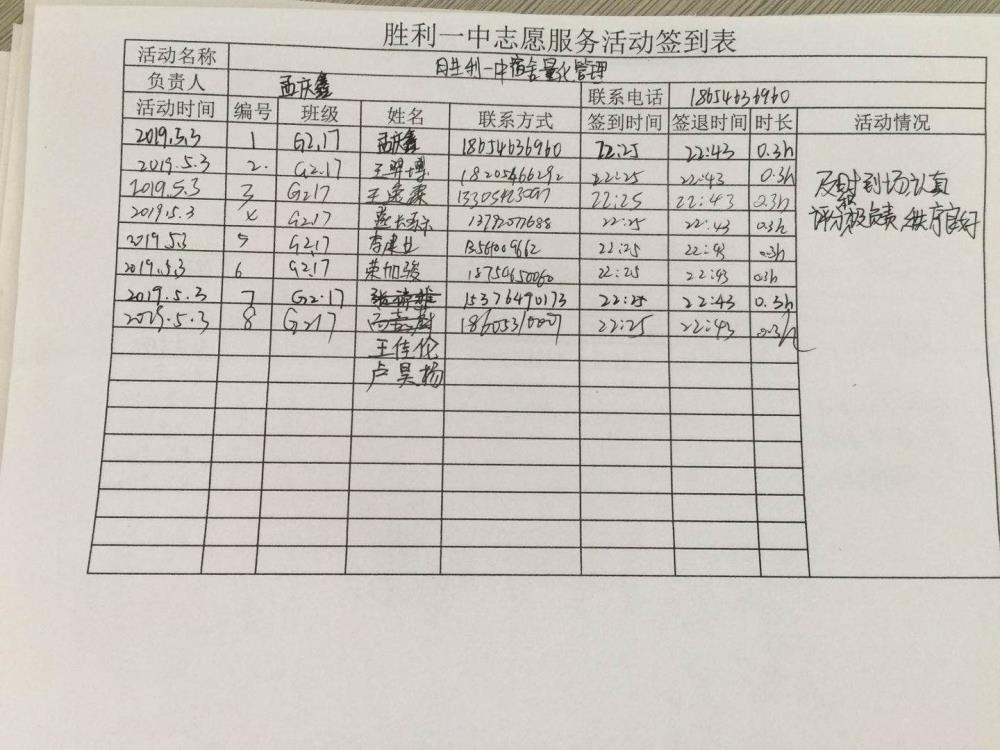 胜利一中志愿服务活动签到表
活动名称 胜利一中宿舍量化管理
负责人 孟庆鑫 联系电话 18654636960
活动时间 编号 班级 姓名 联系方式 签到时间 签退时间 时长 活动情况
2019.5.3 1 G2.17 孟庆鑫 18654636960 22:25 22:43 0.3h
2019.5.3 2. G2.17 王翌博 18205466292 22:25 22:43 0.3h
2019.5.3 3 G2.17 22:25 22:43 0.3h
2019.5.3 G2.17 13792077688 22:25 22:43 0.3h
2019.5.3 5 G2.17 李建业 22:25 22:43 0.3h
2019.5.3 6 G2.17 荣加骏 18754650060 22:25 22:43 0.3h
2019.5.3 7 G2.17 15376490173 22:25 22:43 0.3h
2019.5.3 8 G2.17 22:25 22:43 0.3h
王佳伦
卢昊杨
及时到场认真
评分极负责,秩序良好